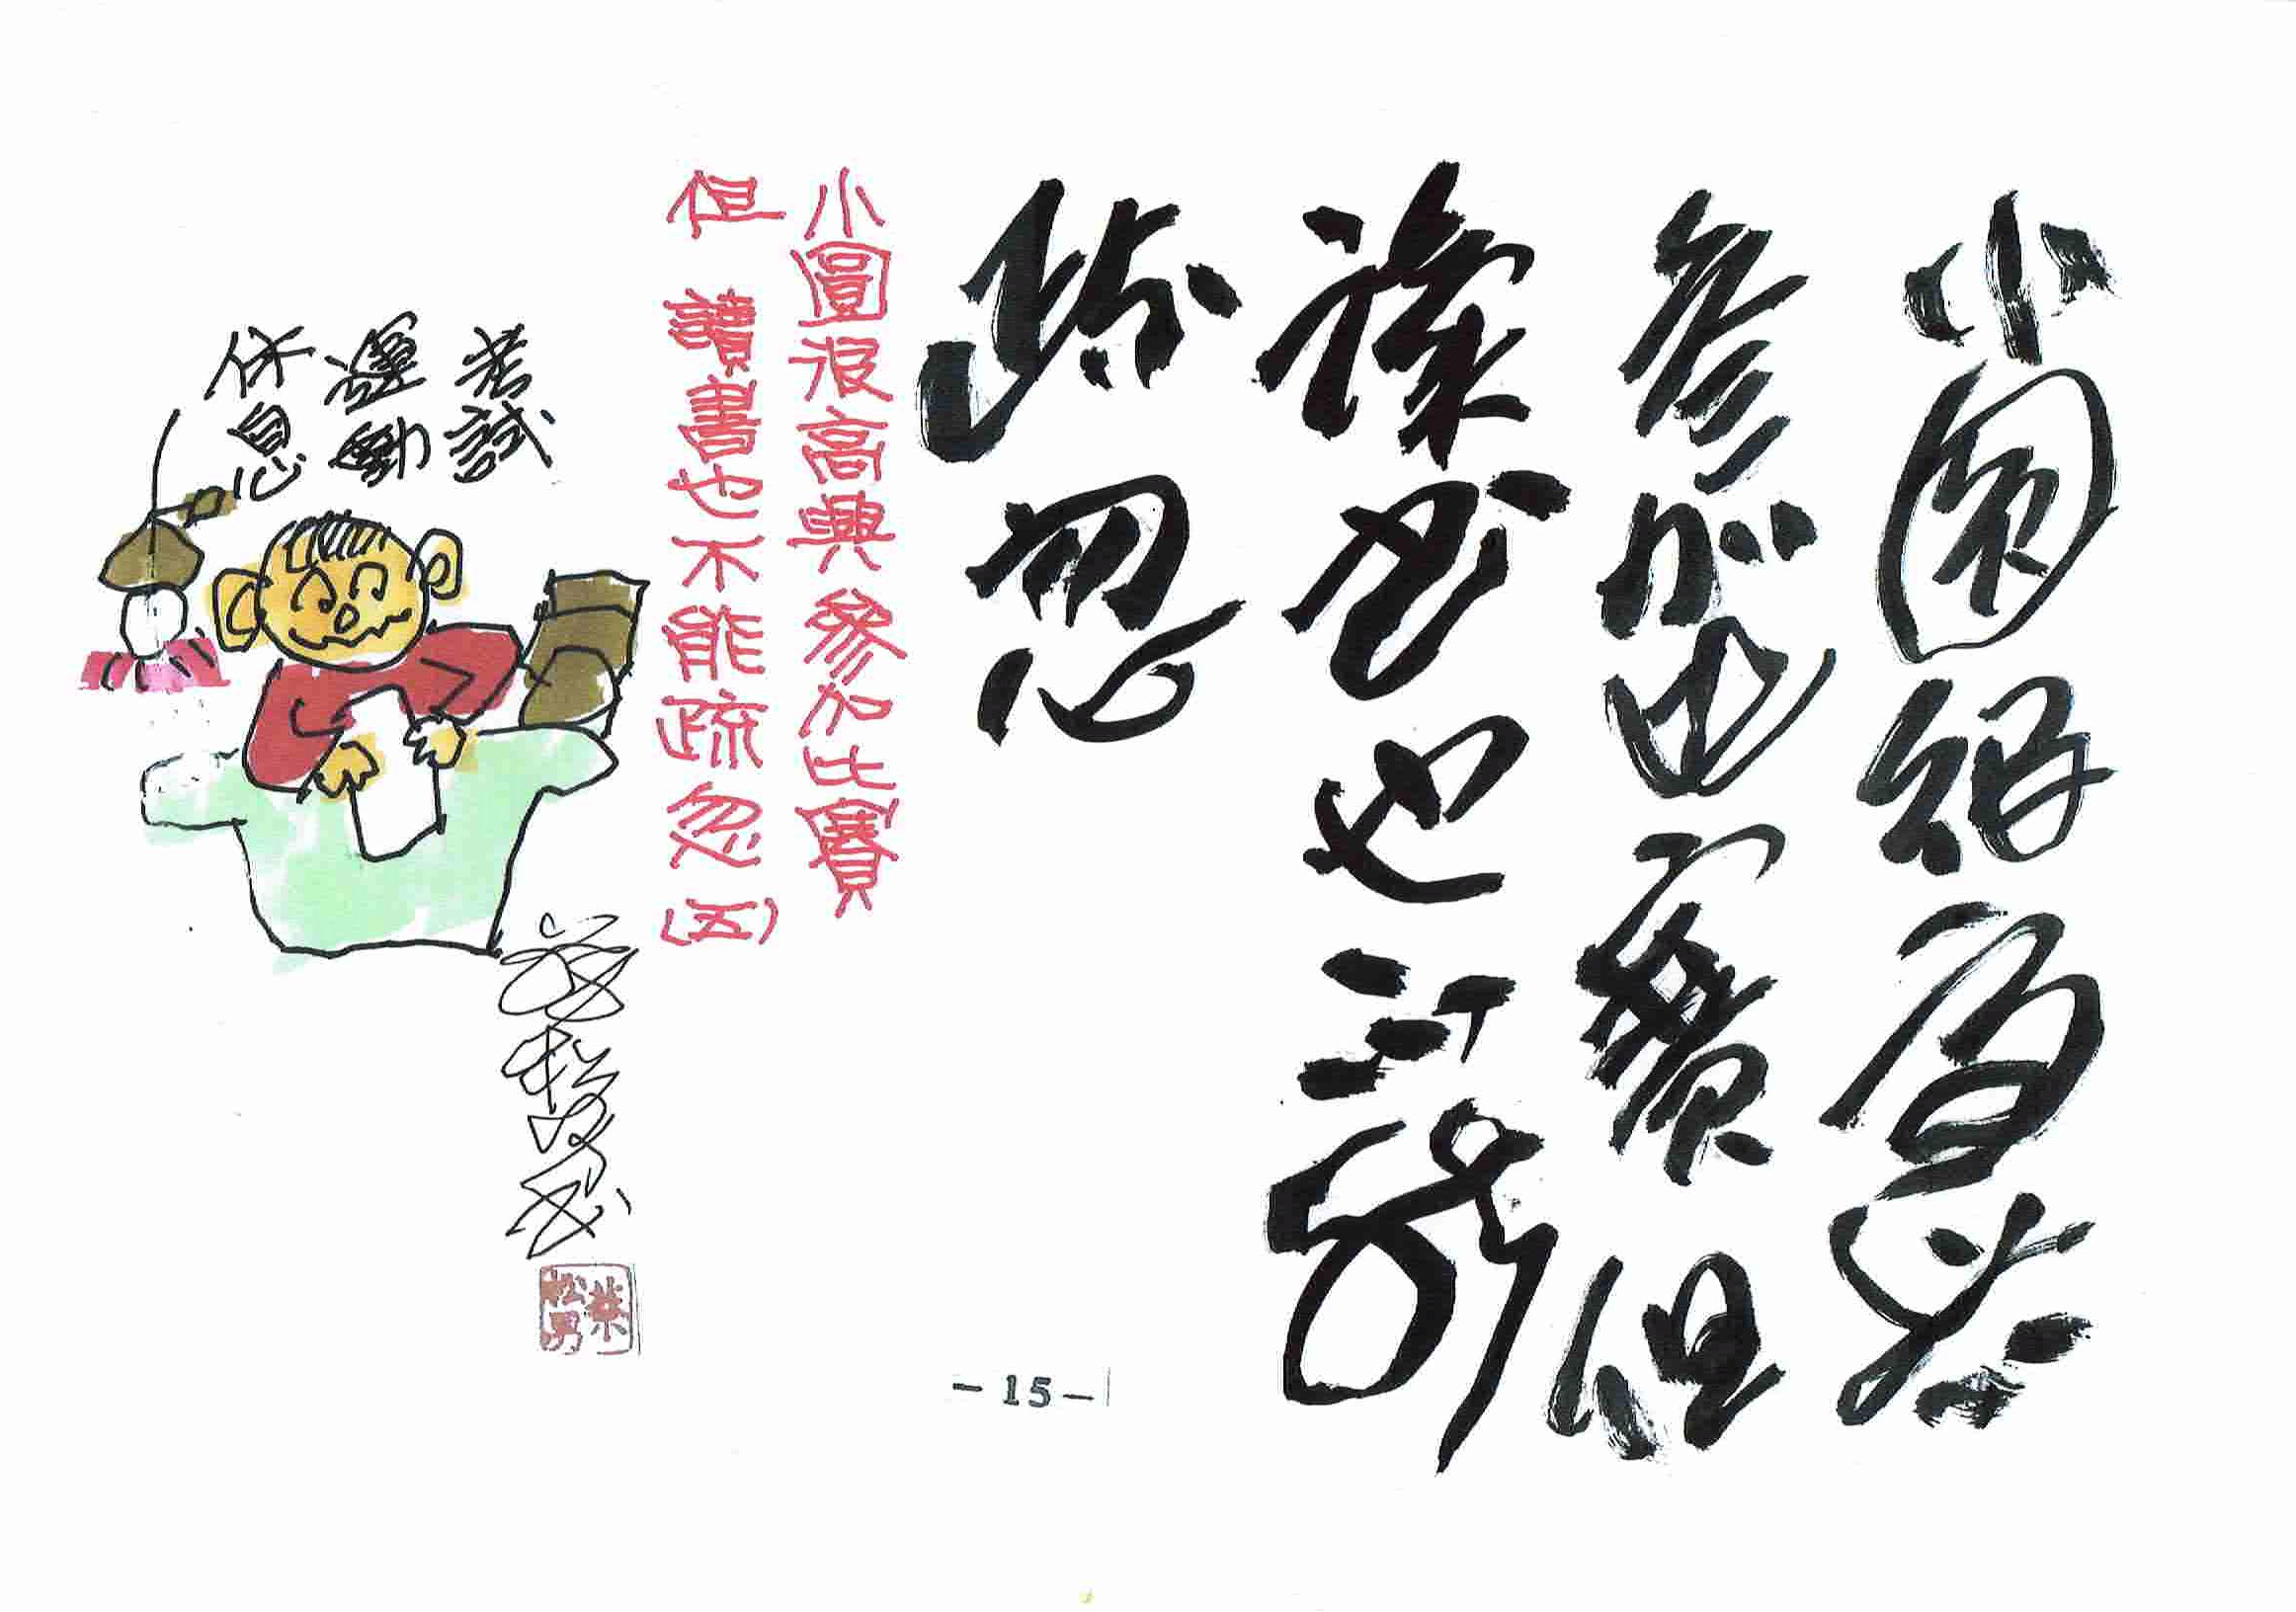 小圓很高興
參加比賽但
讀書也不能
疏忽
小圓很高興參加比賽
但 讀書也不能疏忽(五)
考試
運動
休息
葉松男
-15-